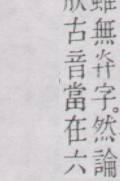 雖無灷字。然論
古音當在六